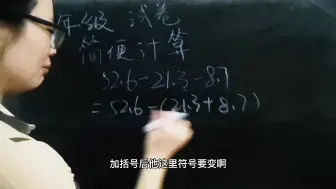 年级 试卷
简便计算
52.6-21.3-8.7
=52.6-(21.3+8.7)
加括号后他这里符号要变啊